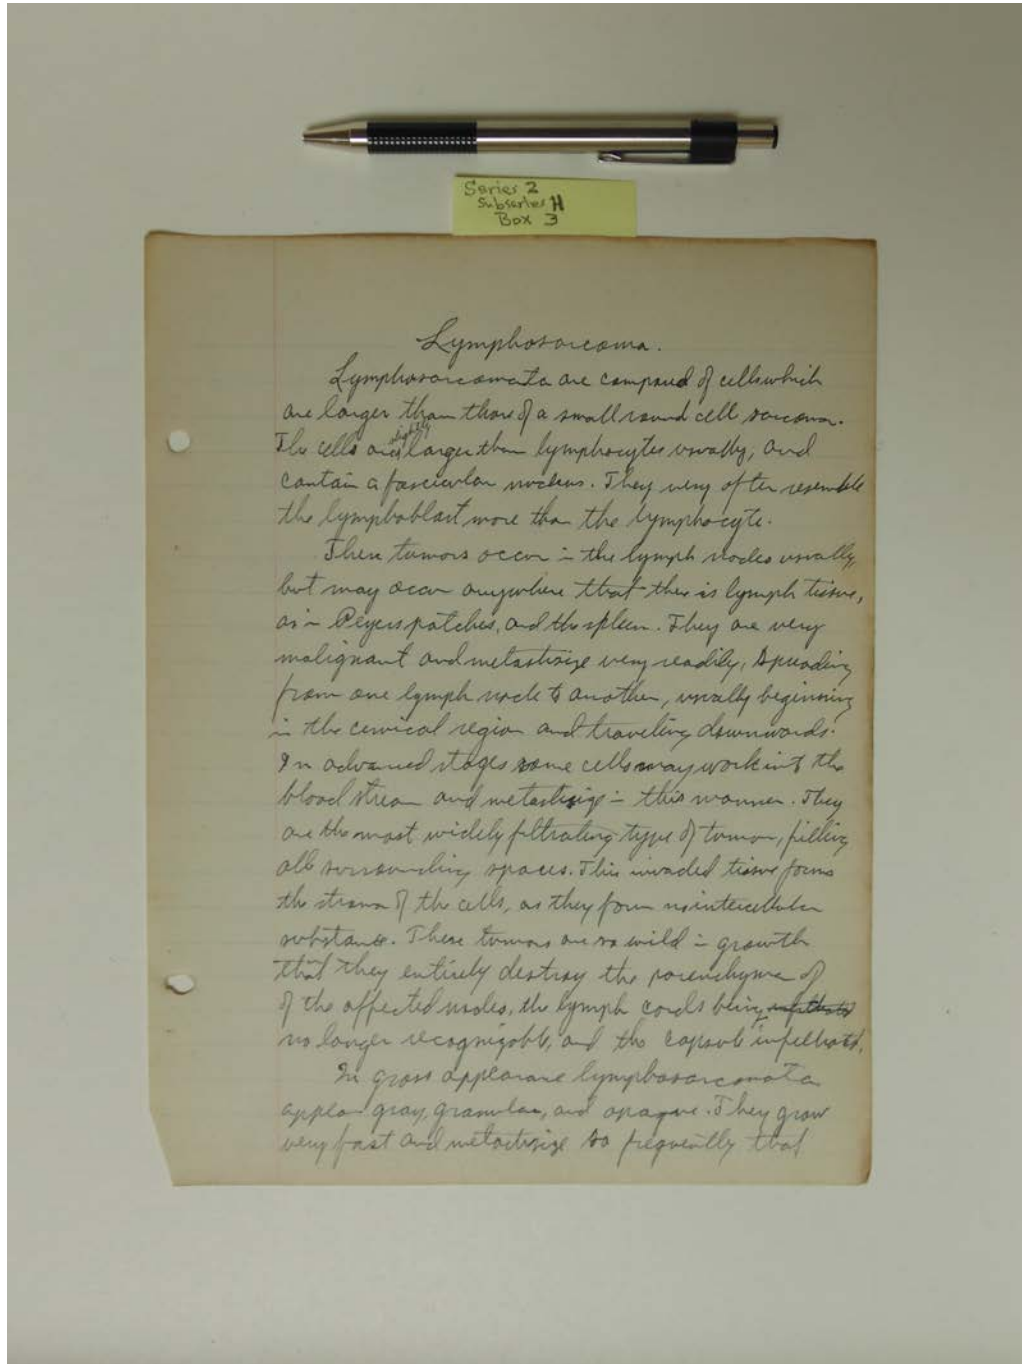 Series 2
Subseries H
Box 3
Lymphosarcoma.
Lymphosarcomata are composed of cells which
are larger than those of a small round cell sarcoma.
The cells are slightly larger than lymphocytes usually, and
contain a nucleus. They very often resemble
the lymphoblast more than the lymphocyte.
These tumors occur in the lymph nodes usually,
but may occur anywhere that there is lymph tissue,
as in Peyers patches, and the spleen. They are very
malignant and metastisize very readily, spreading
from one lymph node to another, usually beginning
in the cervical region and traveling downwards.
In advanced stages some cells may work into the
blood stream and metastisize in this manner. They
are the most widely filtrating type of tumor, filling
all surrounding spaces. This invaded tissue forms
the stroma of the cells, as they form no intercellular
substance. These tumors are so wild in growth
that they entirely destroy the parenchyma of
of the affected nodes, the lymph cords being
no longer recognizable, and the capsule infiltrated.
In gross appearance lymphosarcomata
appear gray, granular, and opaque. They grow
very fast and metastisize so frequently that